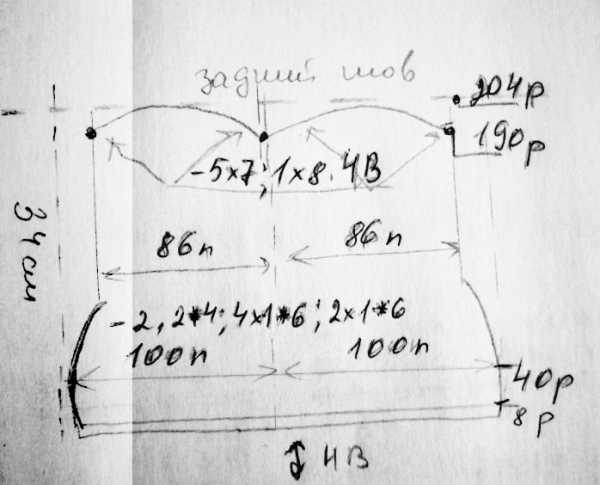 задний шов
204р
190р
-5х7; 1х8. ЧВ
34 см
86п
86п
-2, 2*4; 4х1*6; 2х1*6
100п
100п
40р
8р
ЧВ